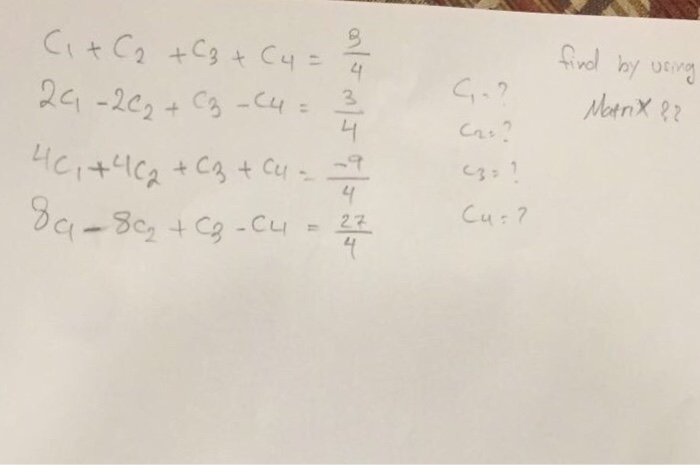 C1 + C2 + C3 + C4 = 9/4
2C1 - 2C2 + C3 - C4 = 3/4
4C1 + 4C2 + C3 + C4 = -9/4
8C1 - 8C2 + C3 - C4 = 27/4
C1 = ?
C2 = ?
C3 = ?
C4 = ?
find by using
Matrix ??